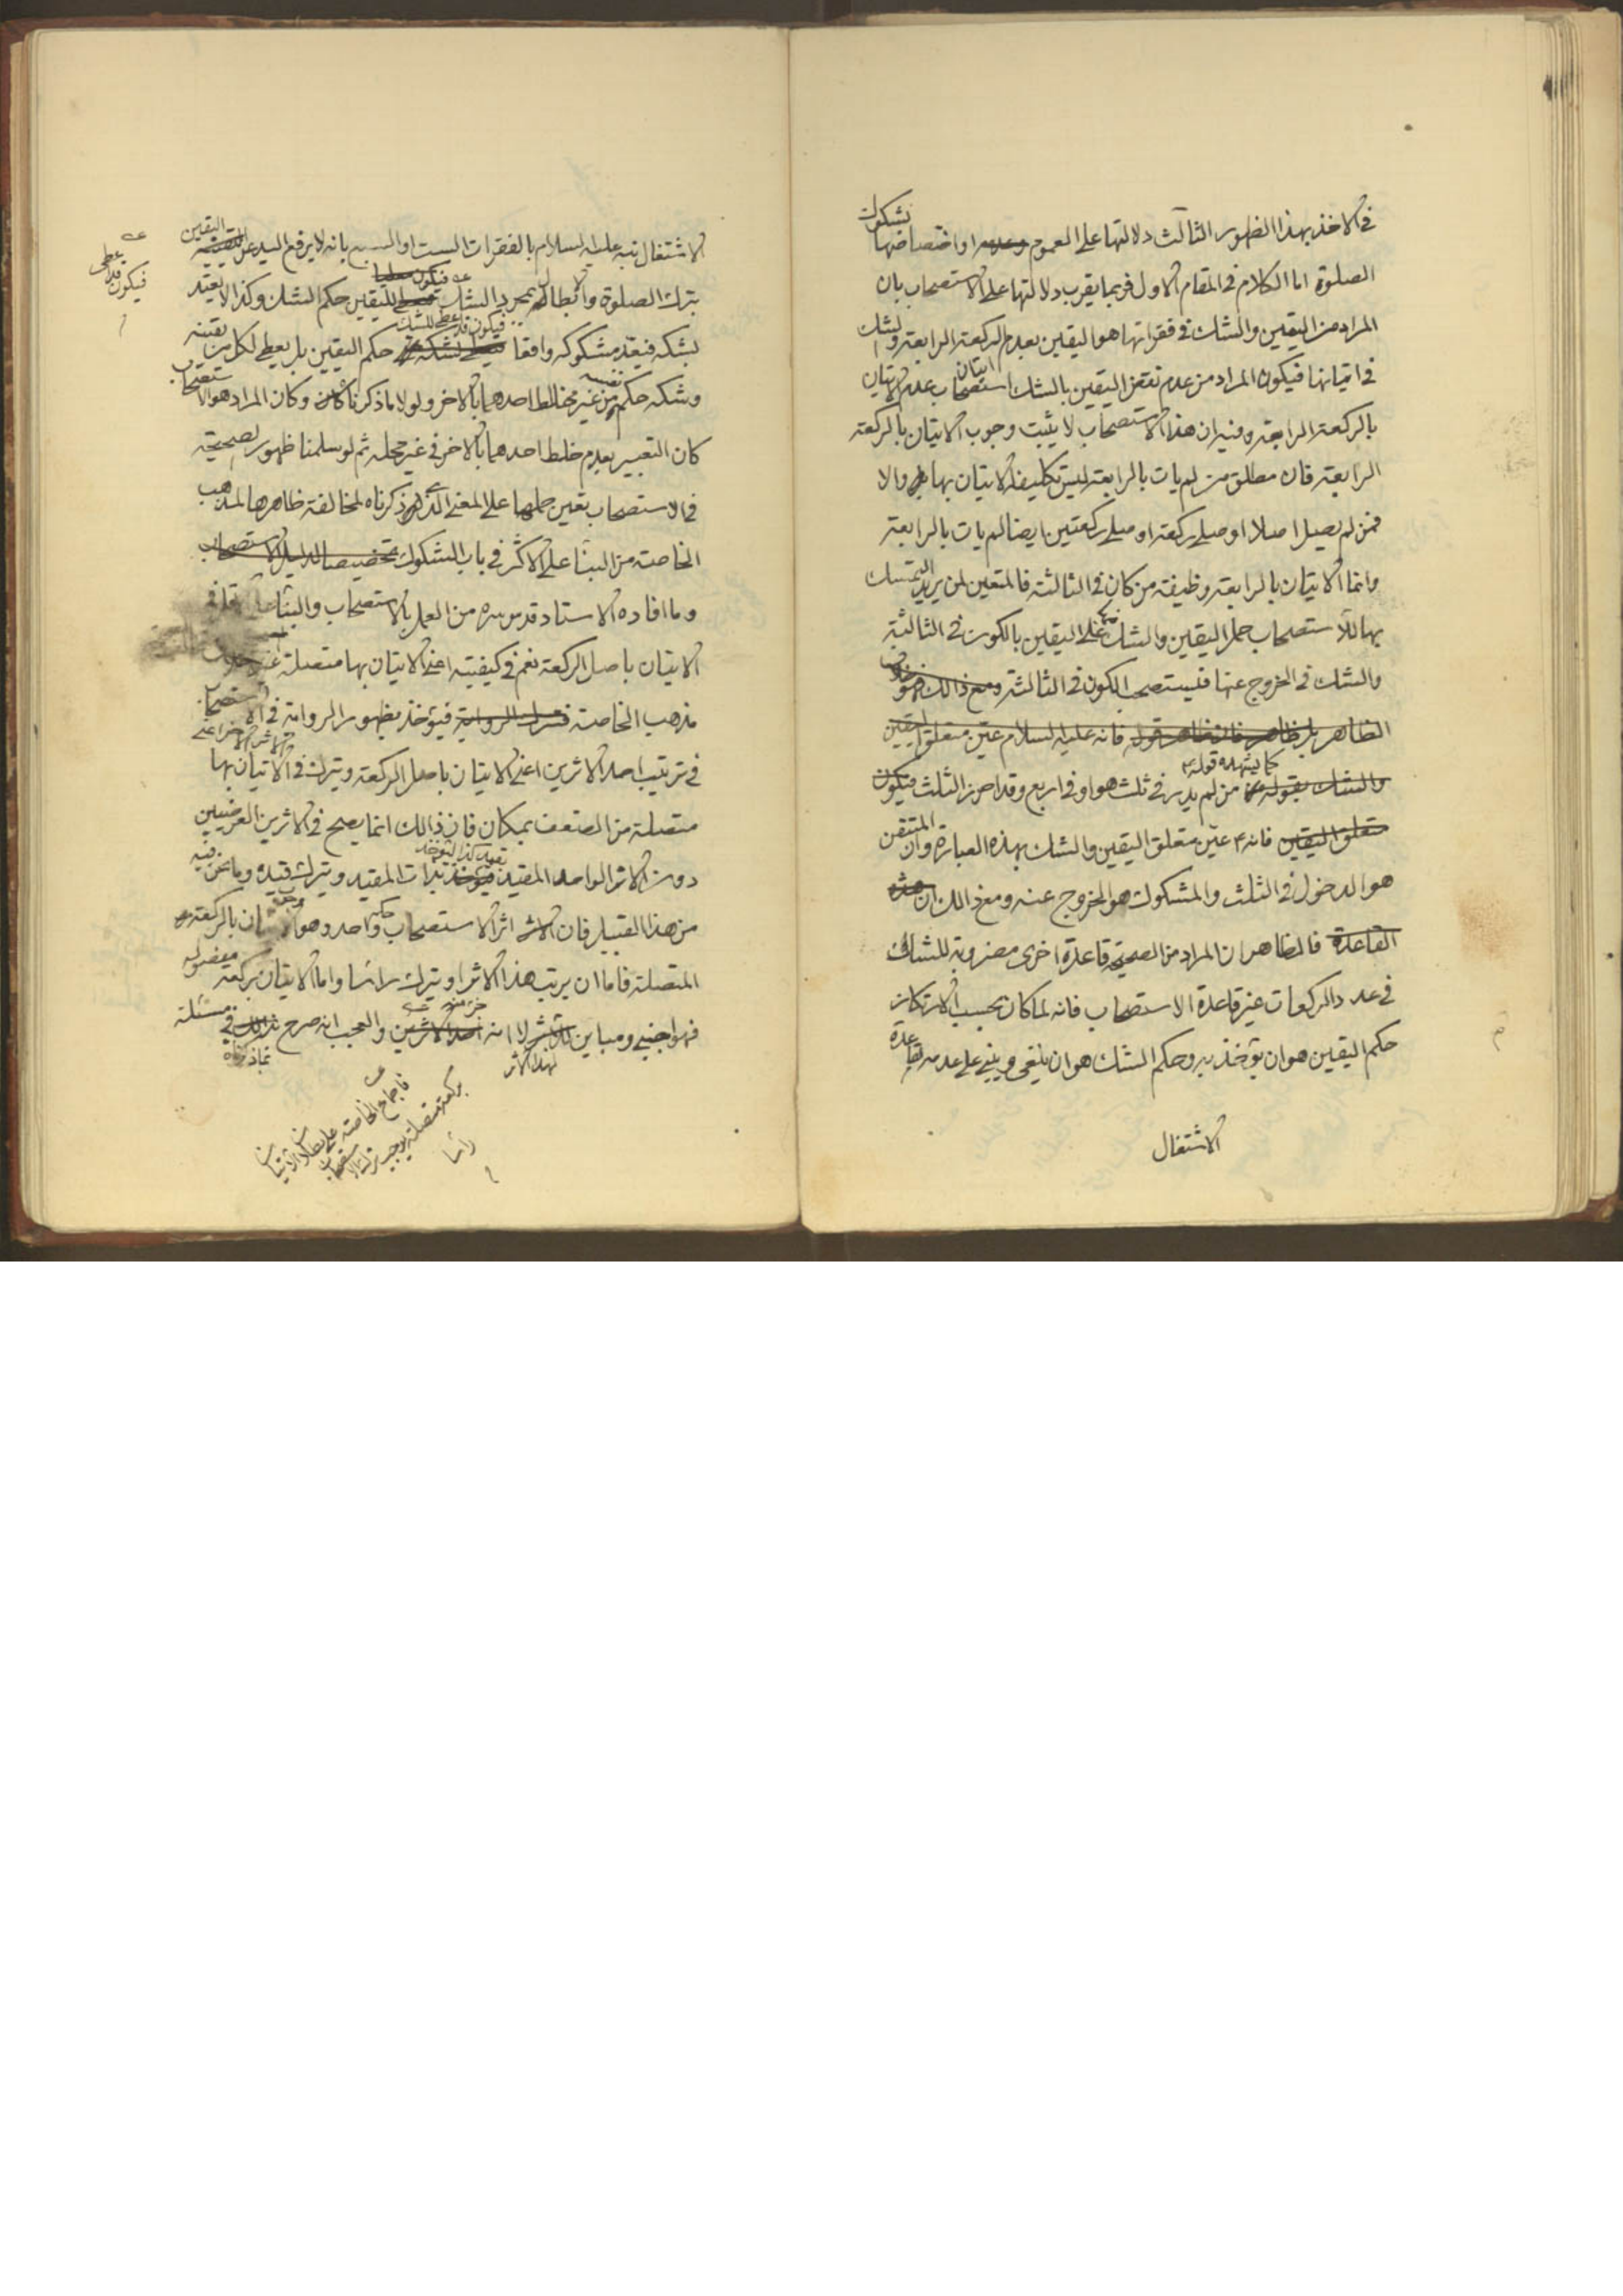 في الاخذ بهذا الظهور الثالث دلالتها على العموم او اختصاصها بشكوك
الصلوة اما الكلام في المقام الاول فربما يقرب دلالتها على الاستصحاب بان
المراد من اليقين والشك في فقراتها هو اليقين بعدم الركعة الرابعة والشك
في اتيانها فيكون المراد من عدم نقض اليقين بالشك استصحاب عدم الاتيان
بالركعة الرابعة وفيه ان هذا الاستصحاب لا يثبت وجوب الاتيان بالركعة
الرابعة فان مطلق من لم يات بالرابعة ليس تكليفه الاتيان بها والا
فمن لم يصل اصلا او صلى ركعة او صلى ركعتين ايضا لم يات بالرابعة
وانما الاتيان بالرابعة وظيفة من كان في الثالثة فالمتعين لمن يريد التمسك
بها للاستصحاب حمل اليقين والشك على اليقين بالكون في الثالثة
والشك في الخروج عنها فيستصحب الكون في الثالثة ومع ذالك فهو خلاف
الظاهر بل ظاهر قوله فانه عليه السلام عين متعلق اليقين
والشك بقوله كما يشهد له قوله ع من لم يدر في ثلث هو او في اربع وقد احرز الثلث فيكون
متعلق اليقين فانه ع عيّن متعلق اليقين والشك بهذه العبارة وان المتيقن
هو الدخول في الثلث والمشكوك هو الخروج عنه ومع ذالك ان هذه
القاعدة فالظاهر ان المراد من الصحيحة قاعدة اخرى مضروبة للشاك
في عدد الركعات غير قاعدة الاستصحاب فانه لما كان بحسب الارتكاز
حكم اليقين هو ان يؤخذ به وحكم الشك هو ان يلغى ويبنى على عدمه لقاعدة
الاشتغال
الاشتغال نبه عليه السلام بالفقرات الست او السبع بانه لا يرفع اليد عن اليقين
بترك الصلوة وابطاله بمجرد الشك فيكون لليقين حكم الشك وكذا لا يعتد
فيكون قد اعطى
بشكه فيعد مشكوكه واقعا فيكون قد اعطى للشك حكم اليقين بل يعطي لكل من يقينه
وشكه حكم نفسه من غير مخالط احدهما بالاخر ولولا ما ذكرنا وكان المراد هو الاستصحاب
كان التعبير بعدم خلط احدهما بالاخر في غير محله ثم لو سلمنا ظهور الصحيحة
في الاستصحاب تعين حملها على المعنى الذي ذكرناه لمخالفة ظاهرها لمذهب
الخاصة من البناء على الاكثر في باب الشكوك تخصيصا لدليل الاستصحاب
وما افاده الاستاد قدس سره من العمل بالاستصحاب والبناء
الاتيان باصل الركعة نعم في كيفيته اعني الاتيان بها متصلة
مذهب الخاصة فيؤخذ بظهور الرواية في الاستصحاب
في ترتيب احد الاثرين اعني الاتيان باصل الركعة ويترك في الاثر الاخر اعني الاتيان بها
متصلة من الضعف بمكان فان ذالك انما يصح في الاثرين العرضيين
دون الاثر الواحد المقيد بذات المقيد ويترك قيده وما نحن فيه
من هذا القبيل فان اثر الاستصحاب حكم واحد وهو بالركعة
المتصلة فاما ان يرتب هذا الاثر او يترك راسا واما الاتيان بركعة مفصولة
فهو اجنبي ومباين لهذا الاثر لا انه جزء منه والعجب انه صرح بذالك في مسئلة
بما ذكرناه
فاجماع الخاصة على بطلان الاتيان
بركعة متصلة يوجب ترك الاستصحاب
راسا